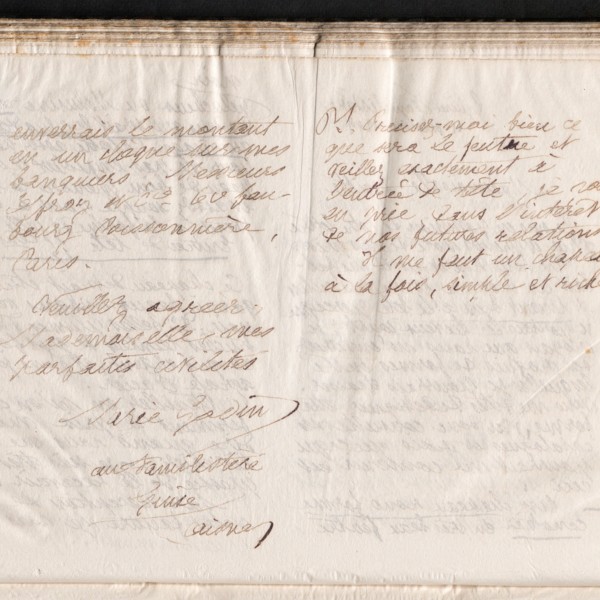 enverrais le montant
en un chèque sur mes
banquiers Messieurs
Offroy et Cie 60 fau-
bourg Poissonnière,
Paris.
Veuillez agréer,
Mademoiselle, mes
parfaites civilités
Marie Godin
au Familistère
Guise
Aisne
Précisez-moi bien ce
que sera le feutre et
veillez exactement à
l'entrée de tête je vous
en prie dans l'intérêt
de nos futures relations
Il me faut un chapeau
à la fois, simple et riche